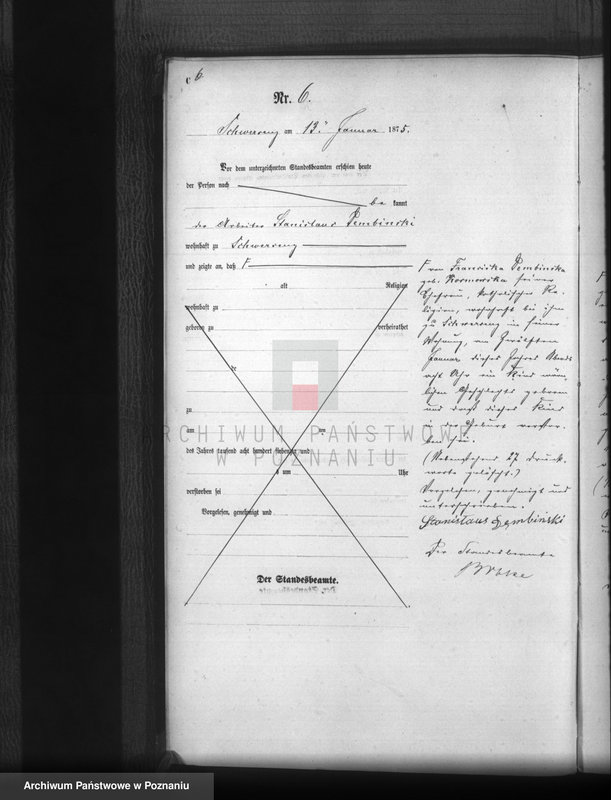 C 6.
Nr. 6.
Schwersenz am 13ten Januar 1875.
Vor dem unterzeichneten Standesbeamten erschien heute
der Person nach
be kannt
der Arbeiter Stanislaus Dembinski
wohnhaft zu Schwersenz
und zeigte an, daß
alt Religion
wohnhaft zu
geboren zu verheirathet
de
zu
am
des Jahres tausend acht hundert siebenzig und
um Uhr
verstorben sei
Vorgelesen, genehmigt und
Der Standesbeamte.
von Franciska Dembinska
geb. seiner
Ehefrau, katholischer Re-
ligion, wohnhaft bei ihm
zu Schwersenz in seiner
Wohnung, am zwölften
Januar dieses Jahres Abends
acht Uhr ein Kind männ-
lichen Geschlechts geboren
und daß dieses Kind
Geburt verstor-
ben sei.
(Nebenstehend 27 Druck-
worte gelöscht.)
Vorgelesen, genehmigt und
unterschrieben.
Stanislaus Dembinski
Der Standesbeamte
ARCHIWUM PAŃSTWOWE
W POZNANIU
Archiwum Państwowe w Poznaniu